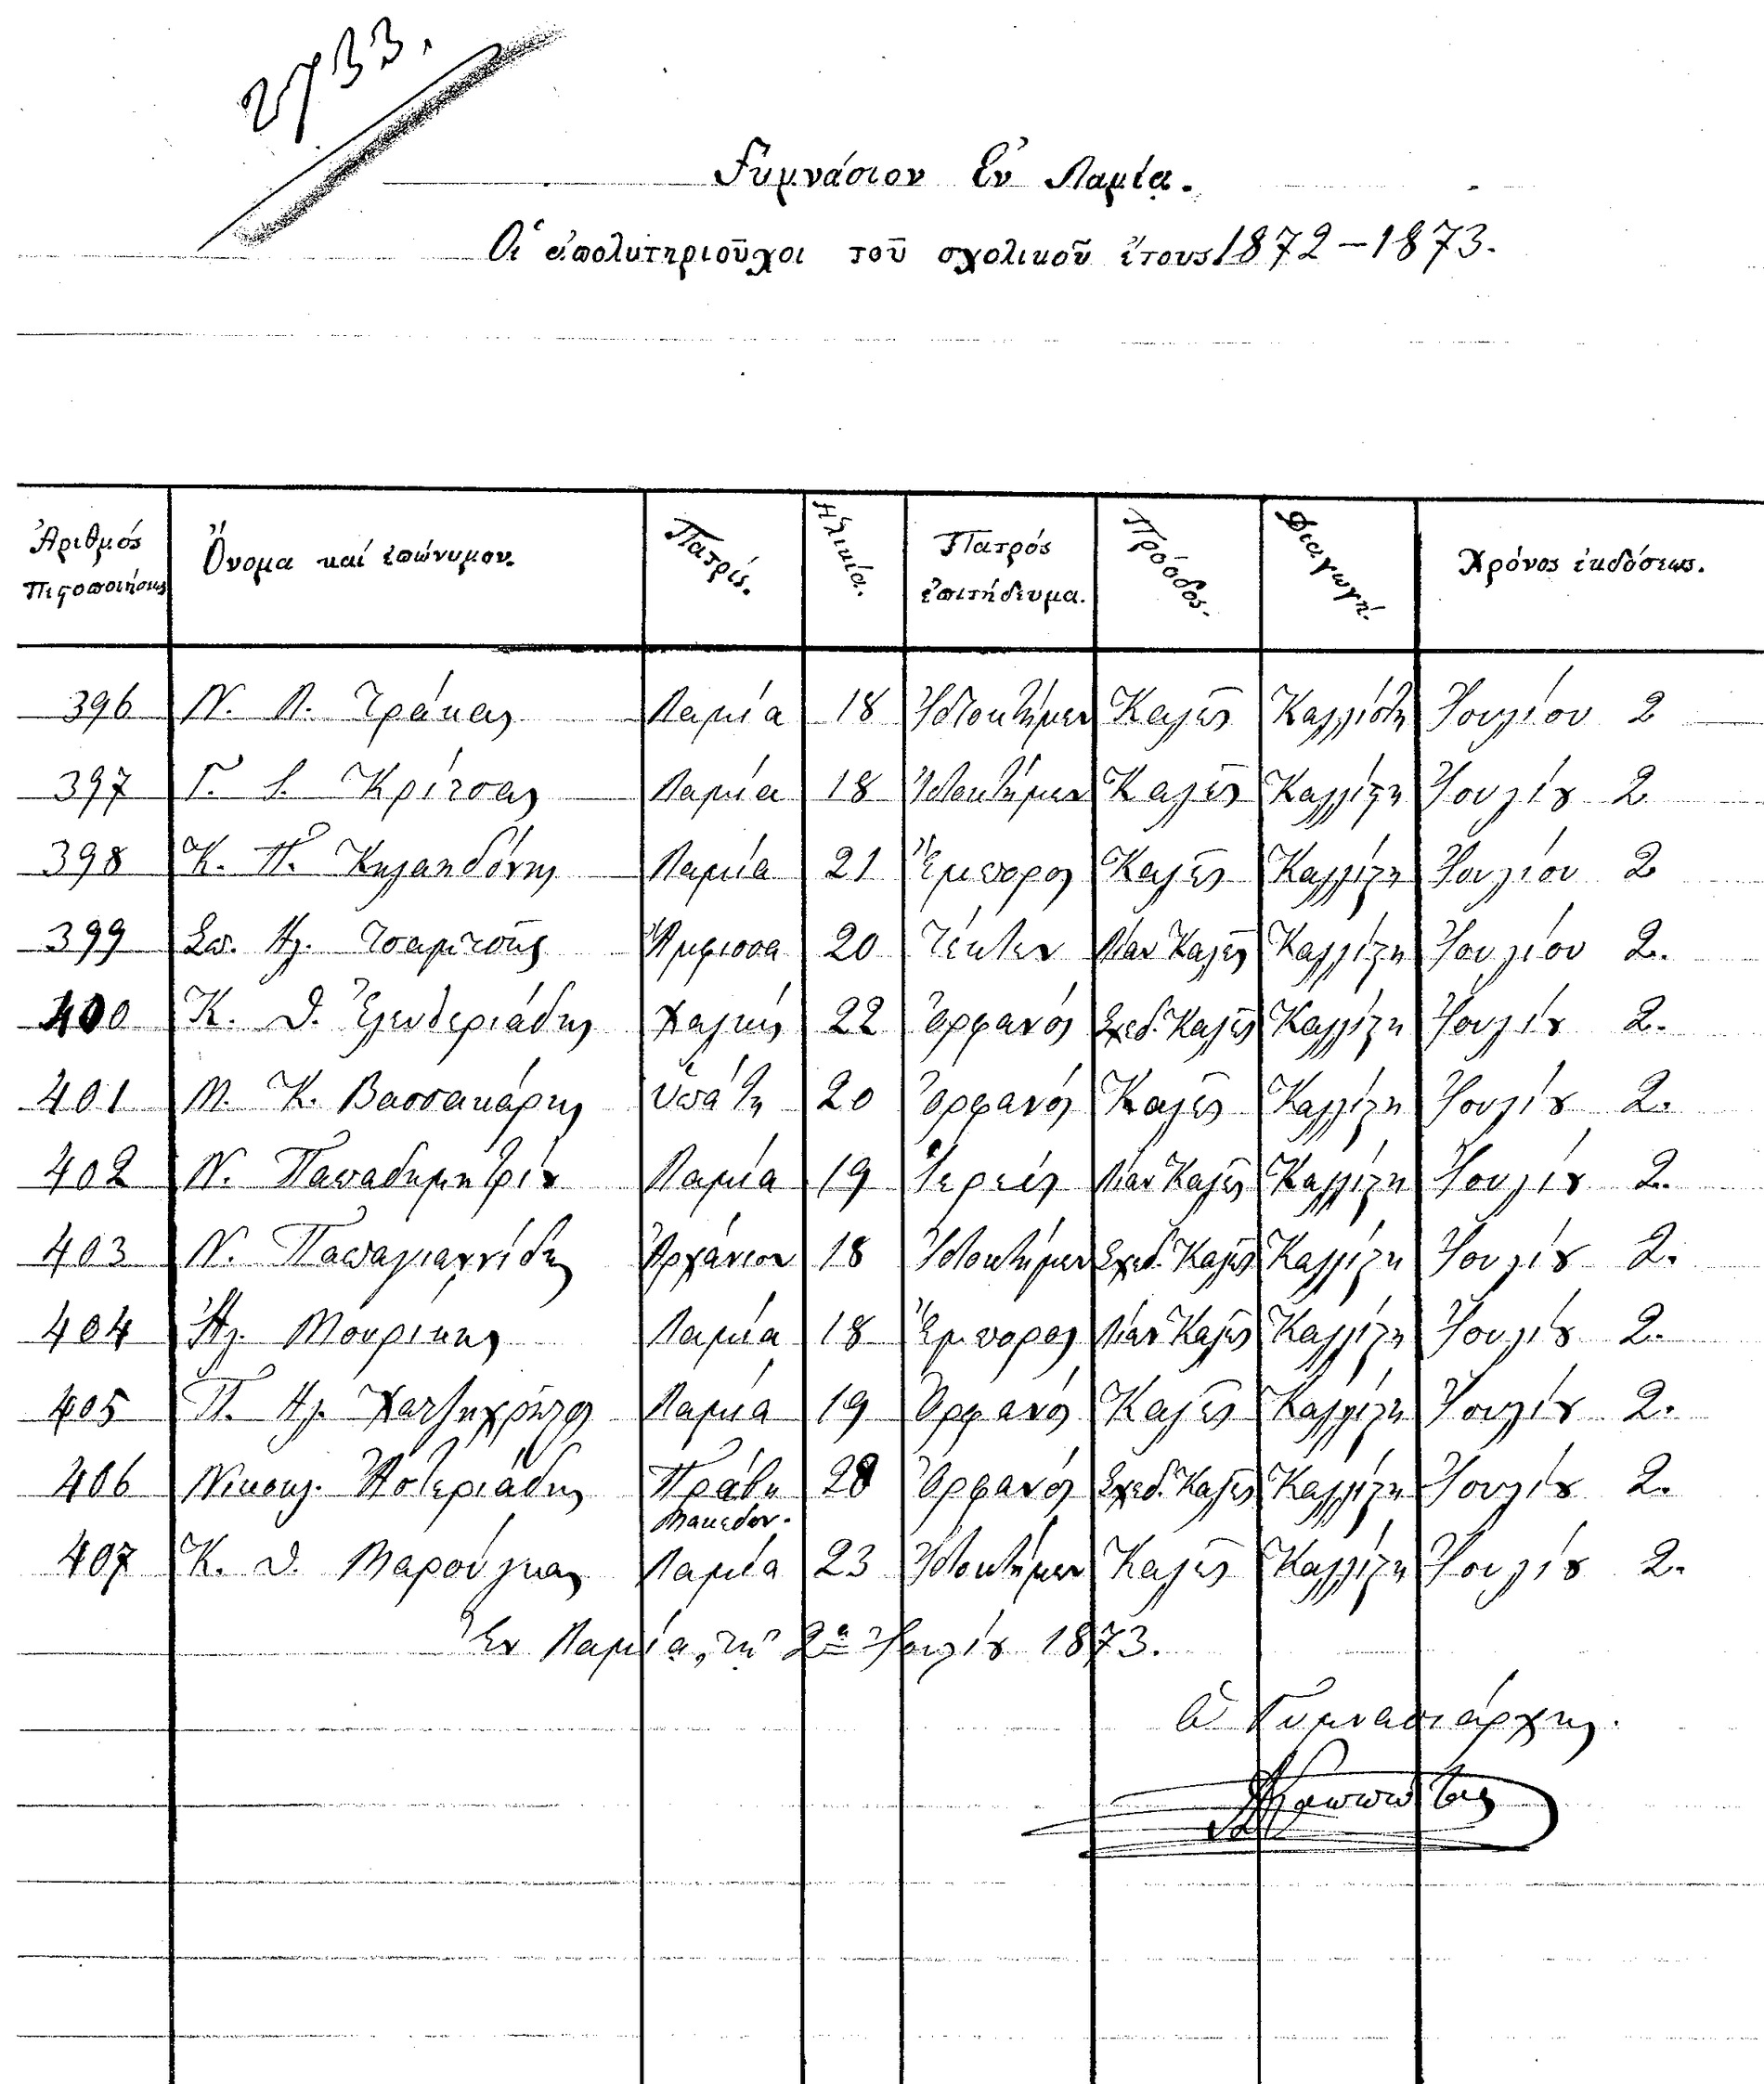 2733.
Γυμνάσιον Ἐν Λαμίᾳ.
Οἱ ἀπολυτηριοῦχοι τοῦ σχολικοῦ ἔτους 1872 – 1873.
Ἀριθμός πιστοποιήσεως Ὄνομα καί ἐπώνυμον. Πατρίς. Ἡλικία. Πατρός ἐπιτήδευμα. Πρόοδος. Διαγωγή. Χρόνος ἐκδόσεως.
396 Ν. Λ. Τράκας Λαμία 18 Κτηματίας Καλῶς Καλλίστη Ἰουλίου 2
397 Γ. Κρίτσας Λαμία 18 Καλῶς Καλλίστη Ἰουλίου 2
398 Κ. Π. Κηλαηδόνης Λαμία 21 Ἔμπορος Καλῶς Καλλίστη Ἰουλίου 2
399 Σπ. Ἀγ. Τσαμτσῆς Ἄμφισσα 20 Τέκτων Λίαν Καλῶς Καλλίστη Ἰουλίου 2.
400 Κ. Δ. Ἐλευθεριάδης Χαλκίς 22 Ὀρφανός Σχεδ. Καλῶς Καλλίστη Ἰουλίου 2.
401 Μ. Κ. Βασσακάρης Ὑπάτη 20 Ὀρφανός Καλῶς Καλλίστη Ἰουλίου 2.
402 Ν. Παπαδημητρίου Λαμία 19 Ἱερεύς Λίαν Καλῶς Καλλίστη Ἰουλίου 2.
403 Ν. Παπαγιαννίδης Ἀρχάνιον 18 Σχεδ. Καλῶς Καλλίστη Ἰουλίου 2.
404 Ἀγ. Μουρίκης Λαμία 18 Ἔμπορος Λίαν Καλῶς Καλλίστη Ἰουλίου 2.
405 Π. Ἀγ. Χατζηχρῆστος Λαμία 19 Ὀρφανός Καλῶς Καλλίστη Ἰουλίου 2.
406 Νικολ. Ἀστεριάδης Πράβη Μακεδον. 20 Ὀρφανός Σχεδ. Καλῶς Καλλίστη Ἰουλίου 2.
407 Κ. Δ. Μαρούλκας Λαμία 23 Καλῶς Καλλίστη Ἰουλίου 2.
Ἐν Λαμίᾳ, τῇ 2ᾳ Ἰουλίου 1873.
Ὁ Γυμνασιάρχης.